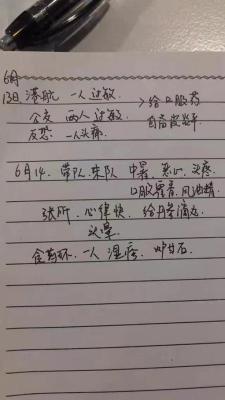 6月
13日 港航 一人过敏.
公交 两人过敏 > 给口服药
反恐 一人头痛
6月14. 带队.朱队 中暑 恶心.头疼
口服藿香.风油精
张所.心律快.给丹参滴丸
头晕
一人 湿疹. 炉甘石